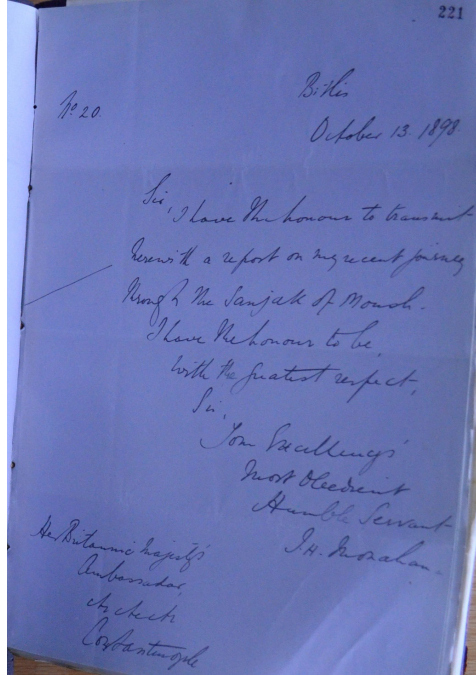 221
Bitlis
No. 20.
October 13. 1898.
Sir,
I have the honour to transmit
herewith a report on my recent journey
through the Sanjak of Moush.
I have the honour to be,
with the greatest respect,
Sir,
Your Excellency's
Most Obedient
Humble Servant
J. H. Monahan.
Her Britannic Majesty's
Ambassador,
&c &c &c
Constantinople